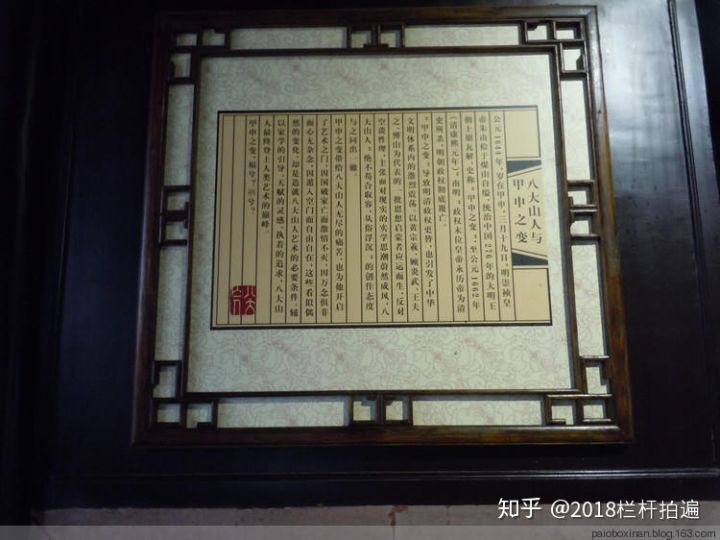 八大山人与
甲申之变
公元1644年，岁在甲申，三月十九日，明崇祯皇
帝朱由检于煤山自缢，统治中国276年的大明王
朝土崩瓦解，史称“甲申之变”；至公元1662年
（清康熙元年），“南明”政权末位皇帝永历帝为清
吏所杀，明朝政权彻底覆亡。
“甲申之变”导致明清政权更替，也引发了中华
文明体系内的激烈震荡，以黄宗羲、顾炎武、王夫
之、傅山为代表的一批思想启蒙者应运而生，反对
空谈性理，主张面对现实的实学思潮蔚然成风，八
大山人“绝不苟合取容、从俗浮沉”的创作态度
与之同出一辙。
甲申之变带给八大山人无尽的痛苦，也为他开启
了艺术之门：因国破家亡而激情不灭，因万念俱非
而心无杂念，因遁入空门而自由自在；这些看似偶
然的变化，却是造就八大山人艺术的必要条件，辅
以家学的引导，天赋的灵感，执着的追求，八大山
人最终登上人类艺术的巅峰。
甲申之变，福兮？祸兮？
知乎 @2018栏杆拍遍
paioboxinan.blog.163.com